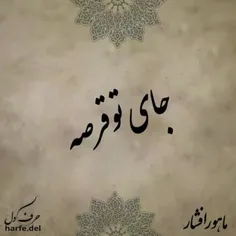 جای تو قرصه
ماهور افشار
حرف دل
harfe.del